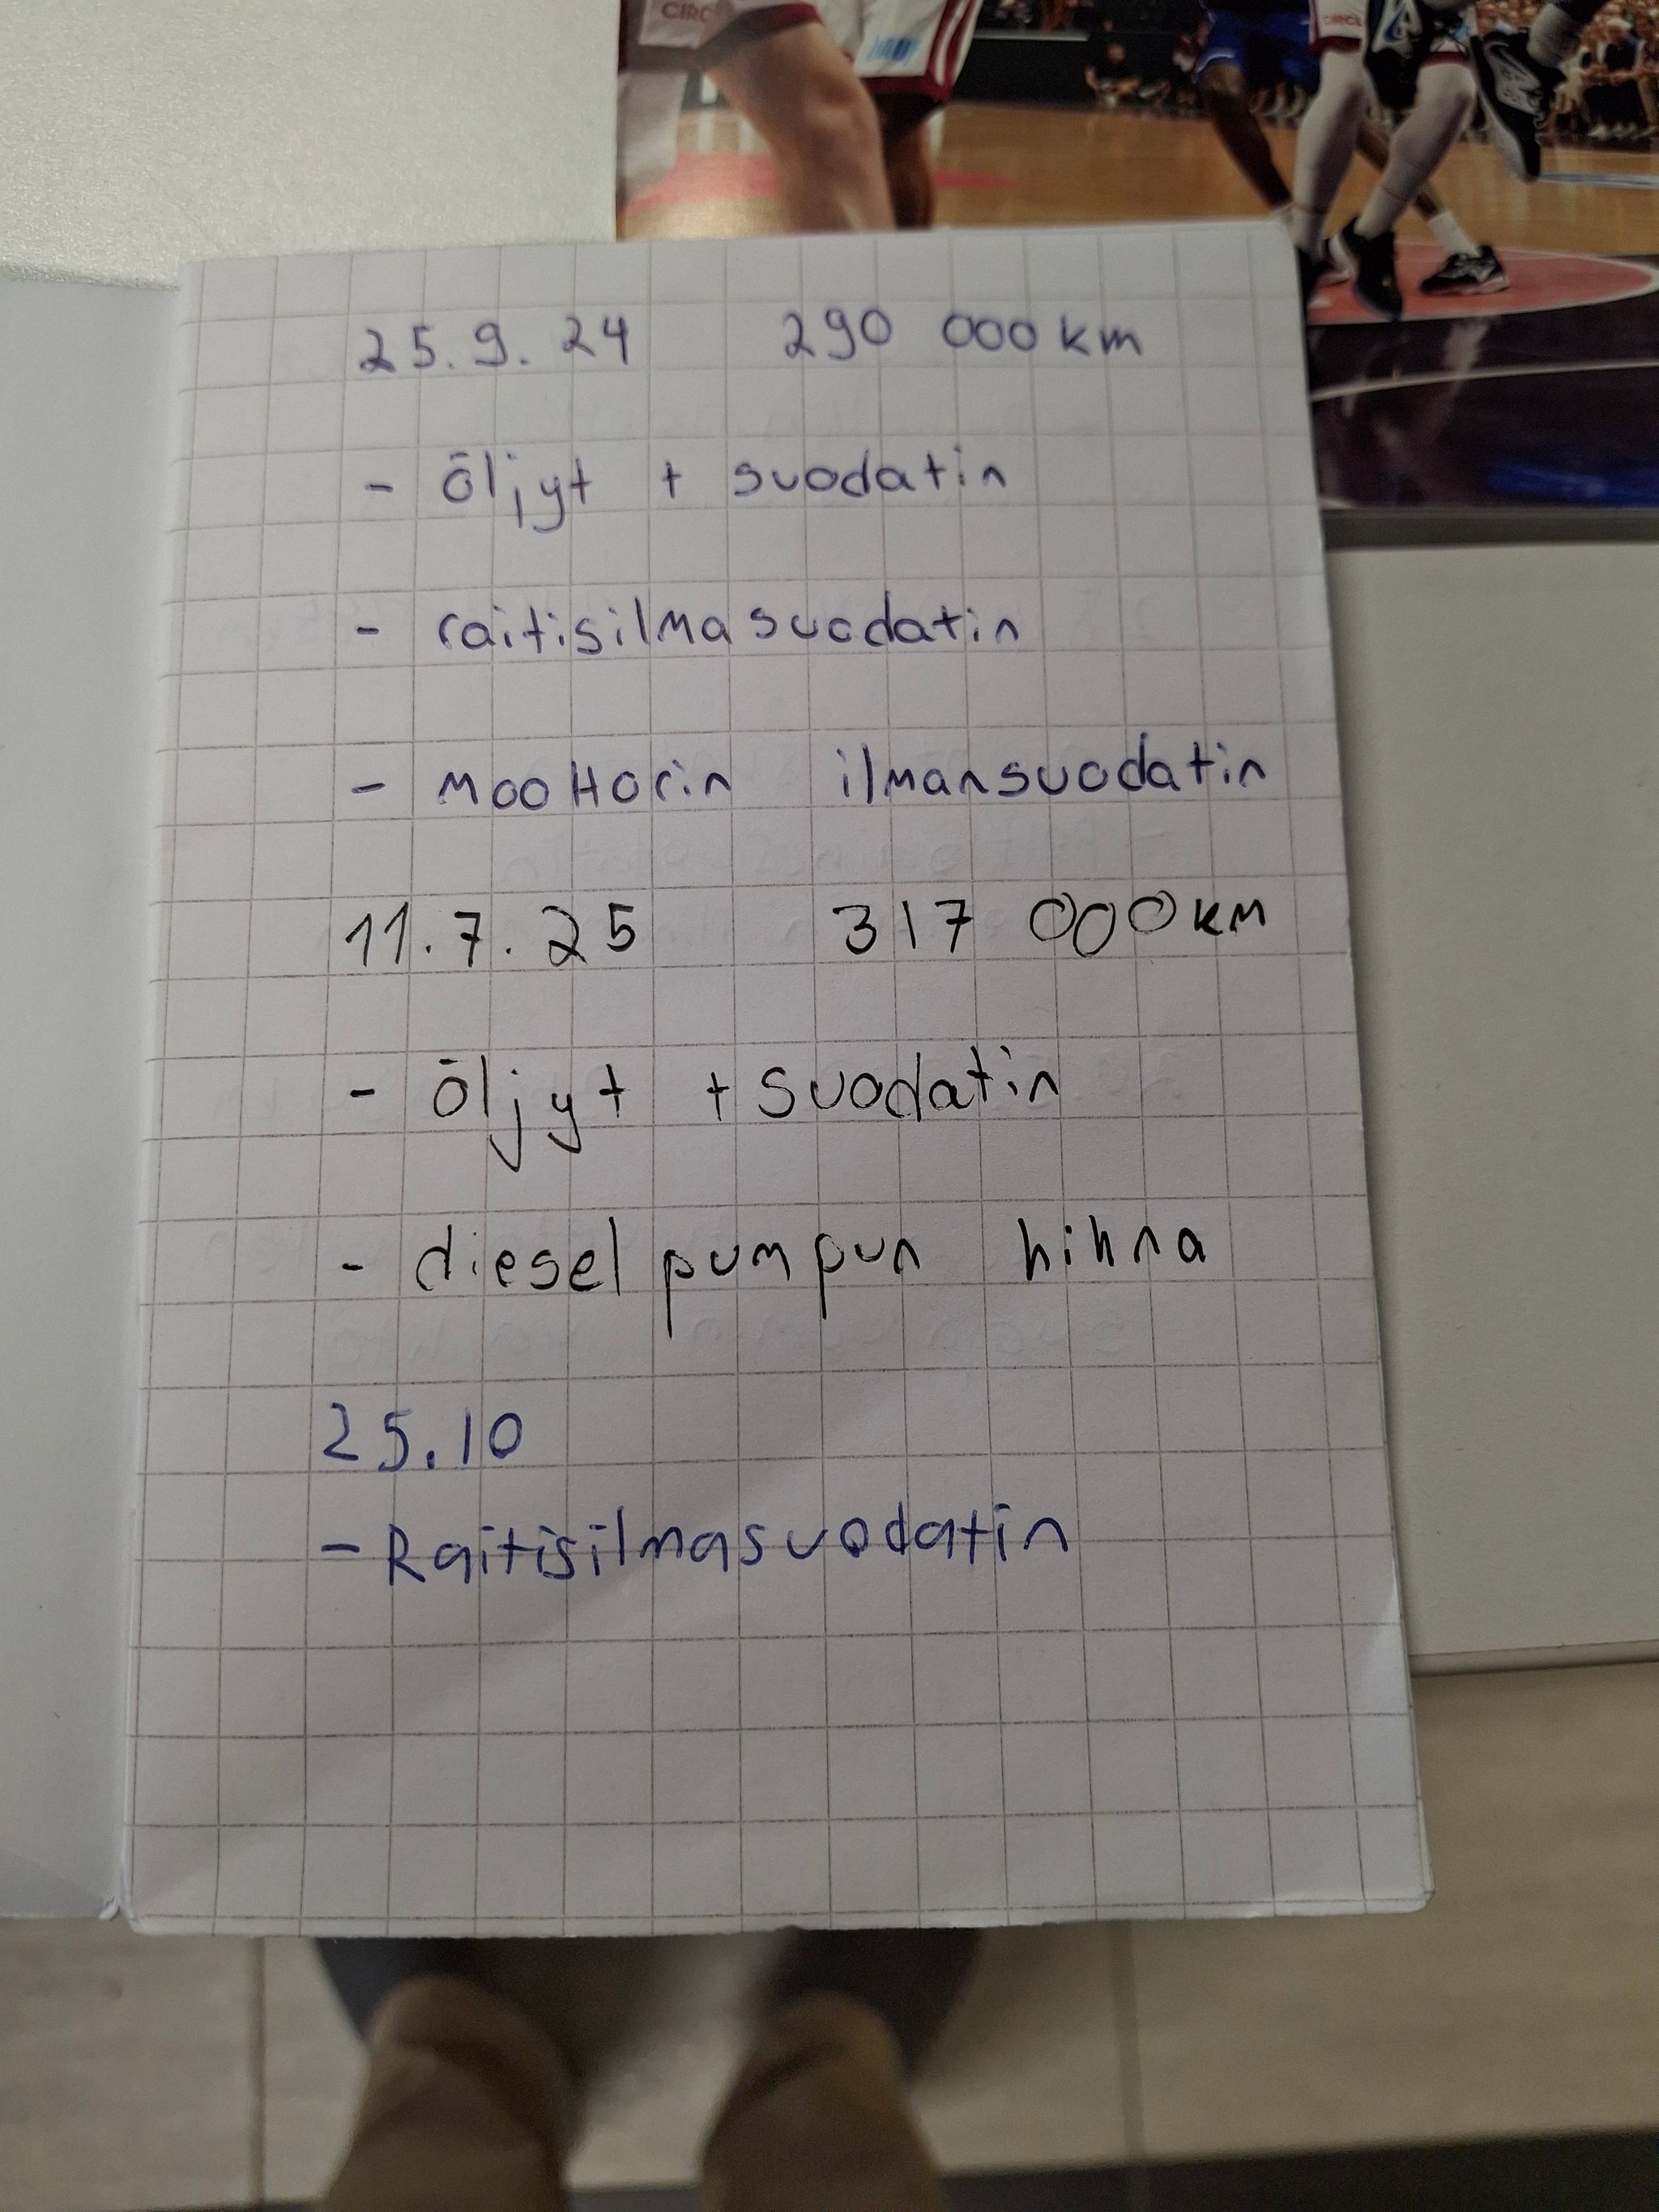 CIRC
CIRCL
25.9.24 290 000 km
- öljyt + suodatin
- raitisilmasuodatin
- moottorin ilmansuodatin
11.7.25 317 000 km
- öljyt + suodatin
- dieselpumpun hihna
25.10
- Raitisilmasuodatin